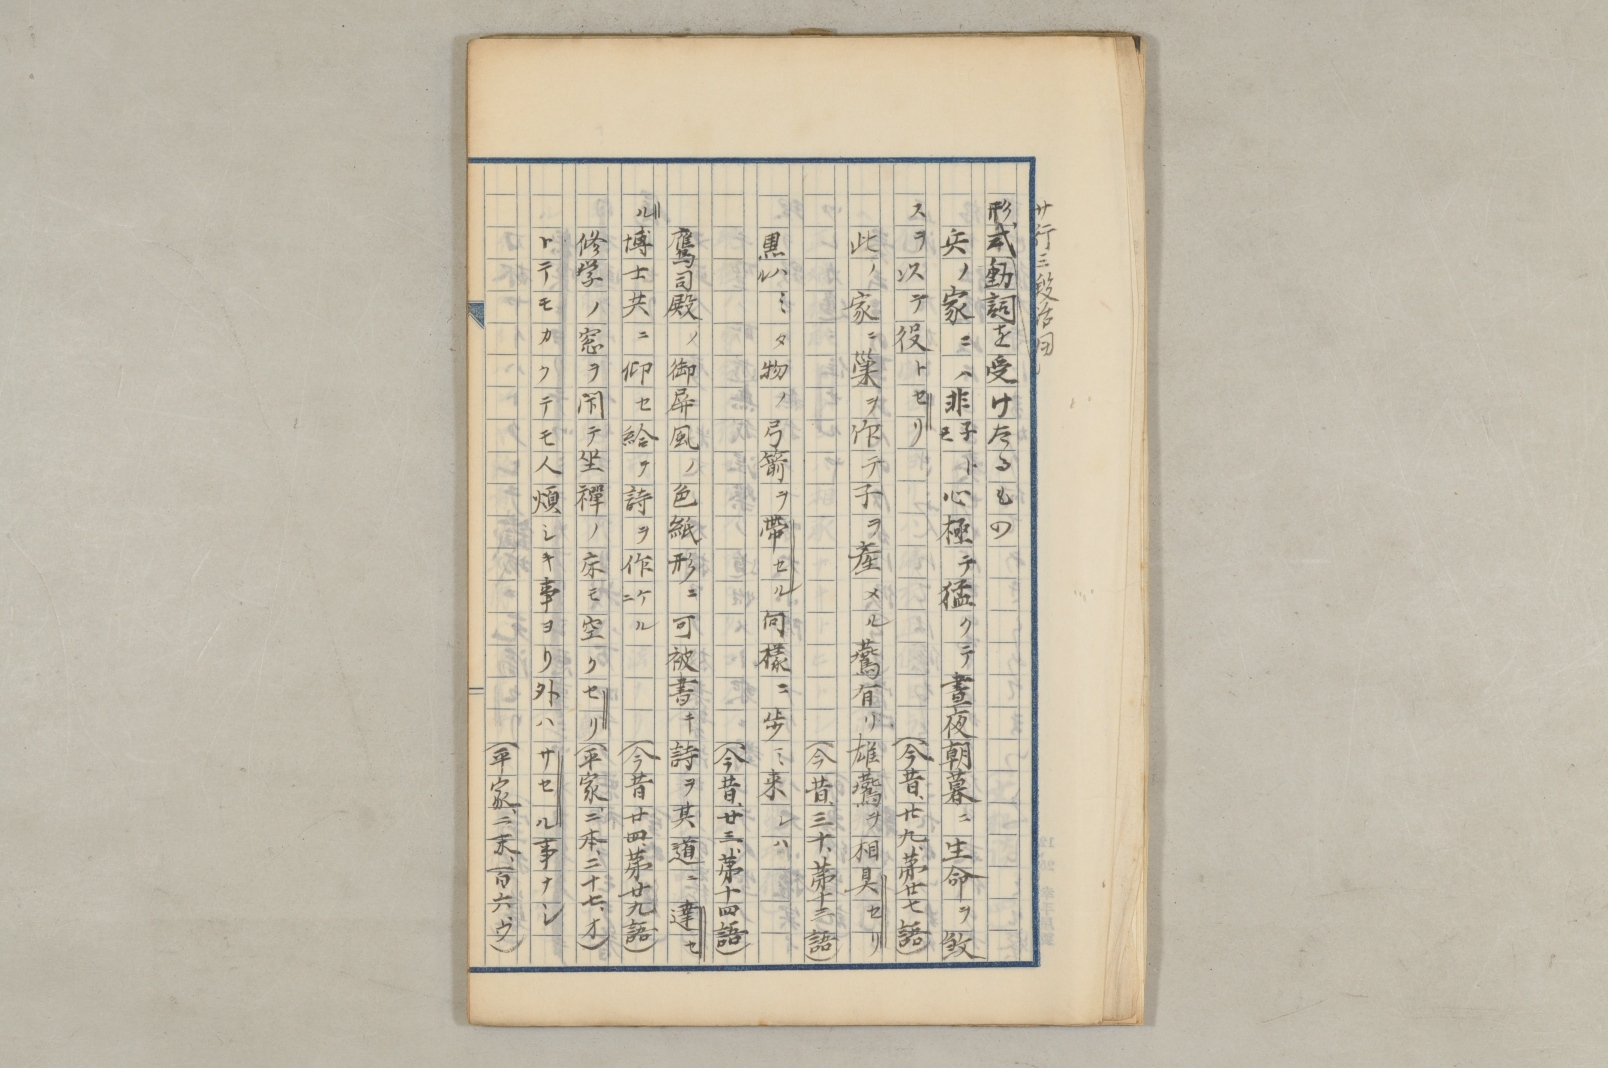 サ行三段活用
形式動詞を受けたるもの
兵ノ家ニハ非子ドモ心極テ猛クテ晝夜朝暮ニ生命ヲ致
スヲ以テ役トセリ
(今昔、廿九、第廿七語)
此ノ家ニ巢ヲ作テ子ヲ産メル鷰有リ雄鷰ヲ相具セリ
(今昔、三十、第十三語)
黒バミタル物ノ弓箭ヲ帶セル何樣ニ步ミ來レハ
(今昔、廿三、第十四語)
鷹司殿ノ御屏風ノ色紙形ニ可被書キ詩ヲ其道ニ達セ
ル博士共ニ仰セ給テ詩ヲ作ケルニ
(今昔廿四、第廿九語)
修学ノ窓ヲ閇テ坐禪ノ床モ空クセリ
(平家、二本、二十七、オ)
トテモカクテモ人煩シキ事ヨリ外ハサセル事ナシ
(平家、二末、百六、ウ)